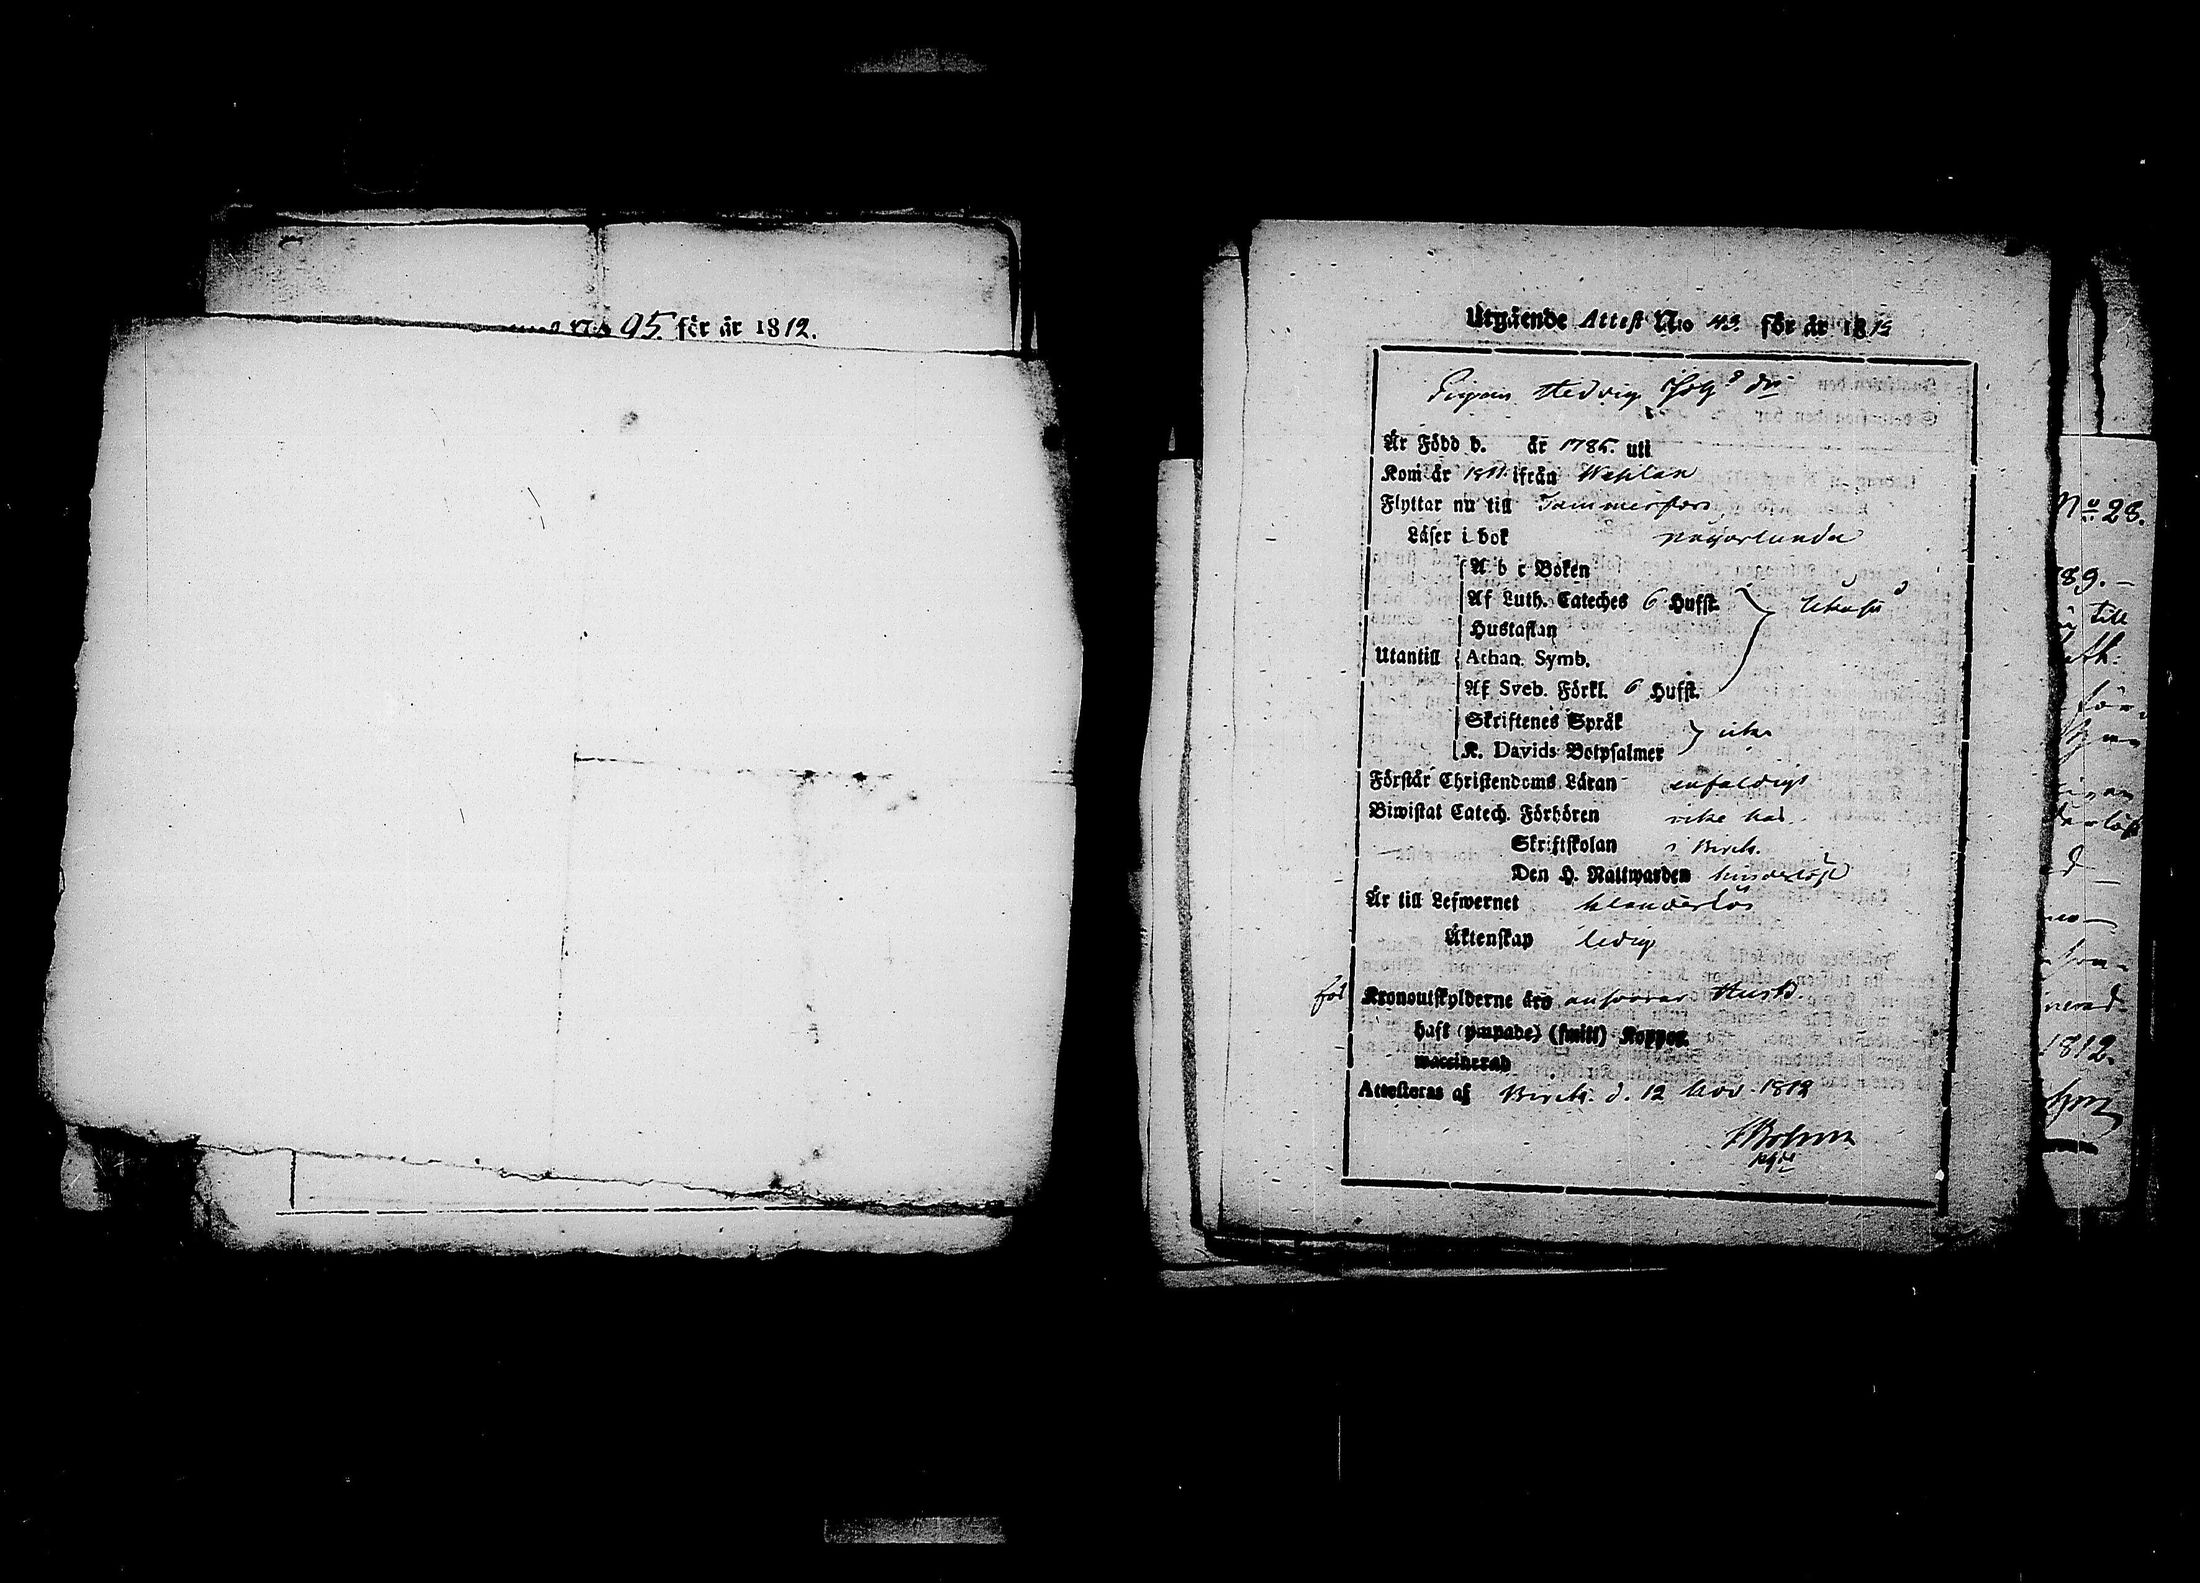 No 95. för år 1812.
Utgående Attest No 43. för år 1812
Pigan Hedvig
Är Född d. år 1785. uti
Kom år 1811. ifrån Wesilax
Flyttar nu till Tammerfors
Läser i bok någorlunda
A b c Boken
Af Luth. Cateches 6 Hufst.
Hustaflan
Utantill Athan. Symb.
Af Sveb. Förkl. 6 Hufst.
Skriftenes Språk
K. Davids Botpsalmer icke
Förstår Christendoms Läran enfaldigt
Biwistat Catech. Förhören icke här
Skriftskolan i Birch.
Den H. Nattwarden hinderlöst
Är till Lefwernet klanderlös
Äktenskap ledig
för Kronoutskylderne äro ansvarar Husb.
haft (ympade) (smitt) Koppor.
waccinerad
Attesteras af Birch. d. 12 Nov. 1812
No 28.
89. –
till
ath:
för
d –
1812.